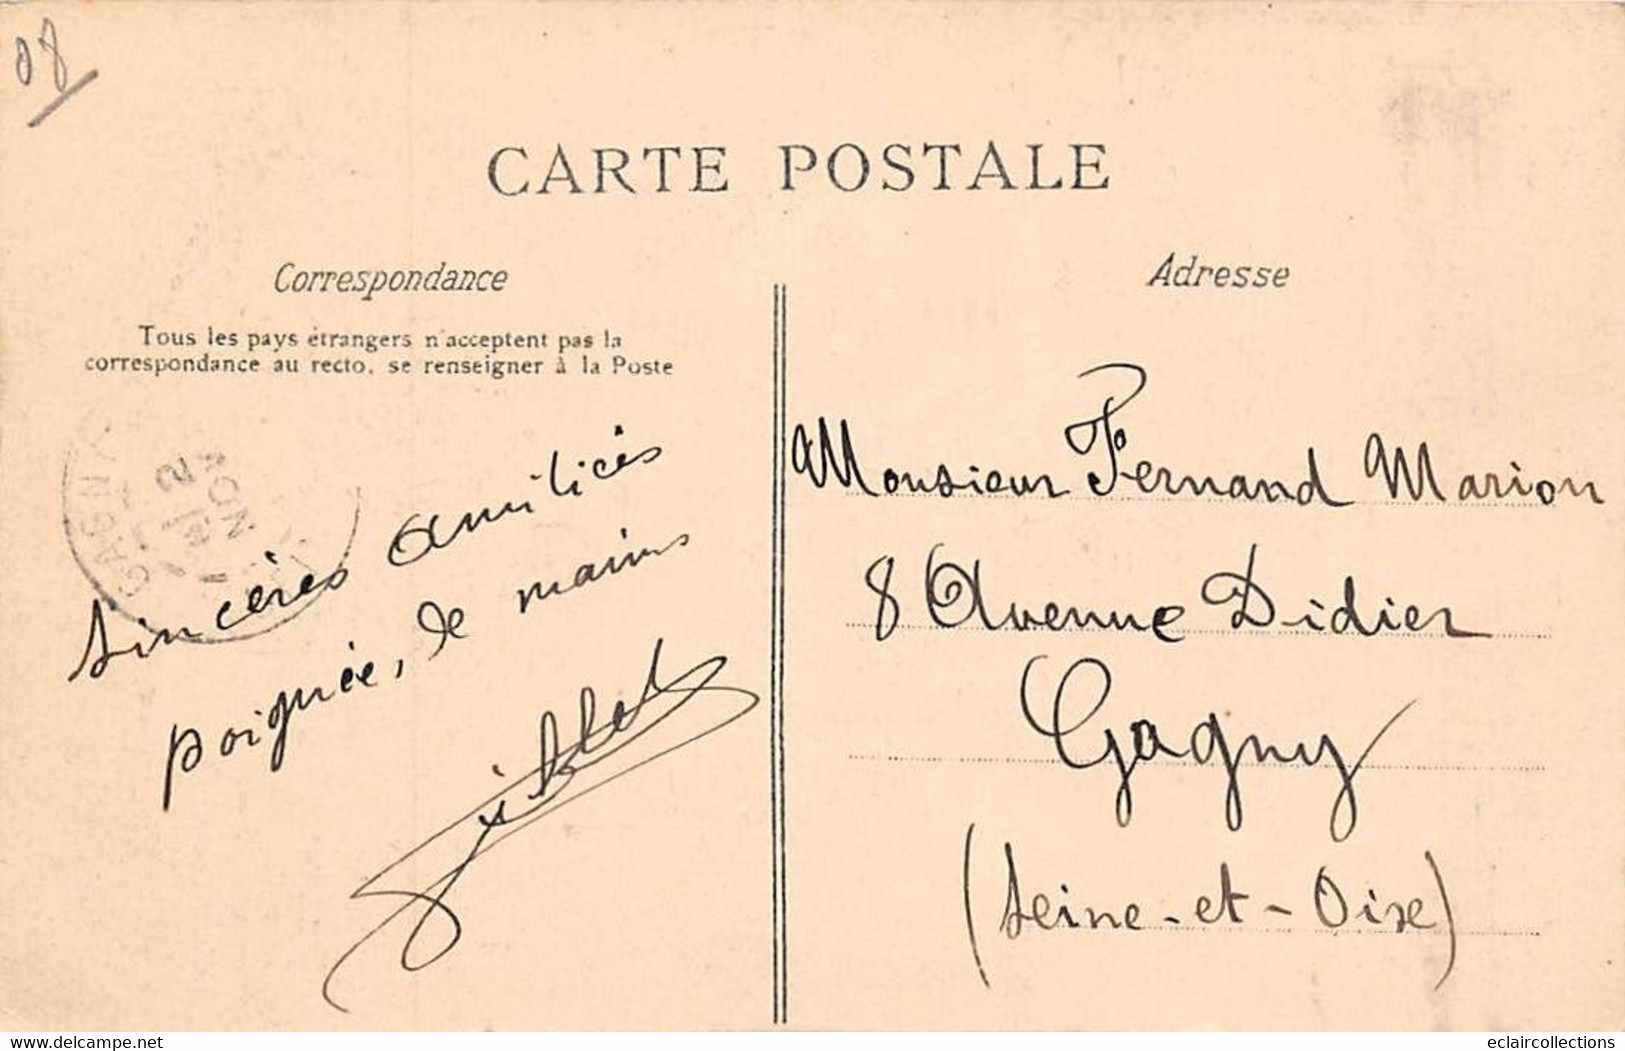 08
CARTE POSTALE
Correspondance
Tous les pays étrangers n'acceptent pas la
correspondance au recto, se renseigner à la Poste
GAGNY
Sincères amitiés
poignée, de mains
Adresse
Monsieur Fernand Marion
8 Avenue Didier
Gagny
(Seine-et-Oise)
www.delcampe.net
eclaircollections